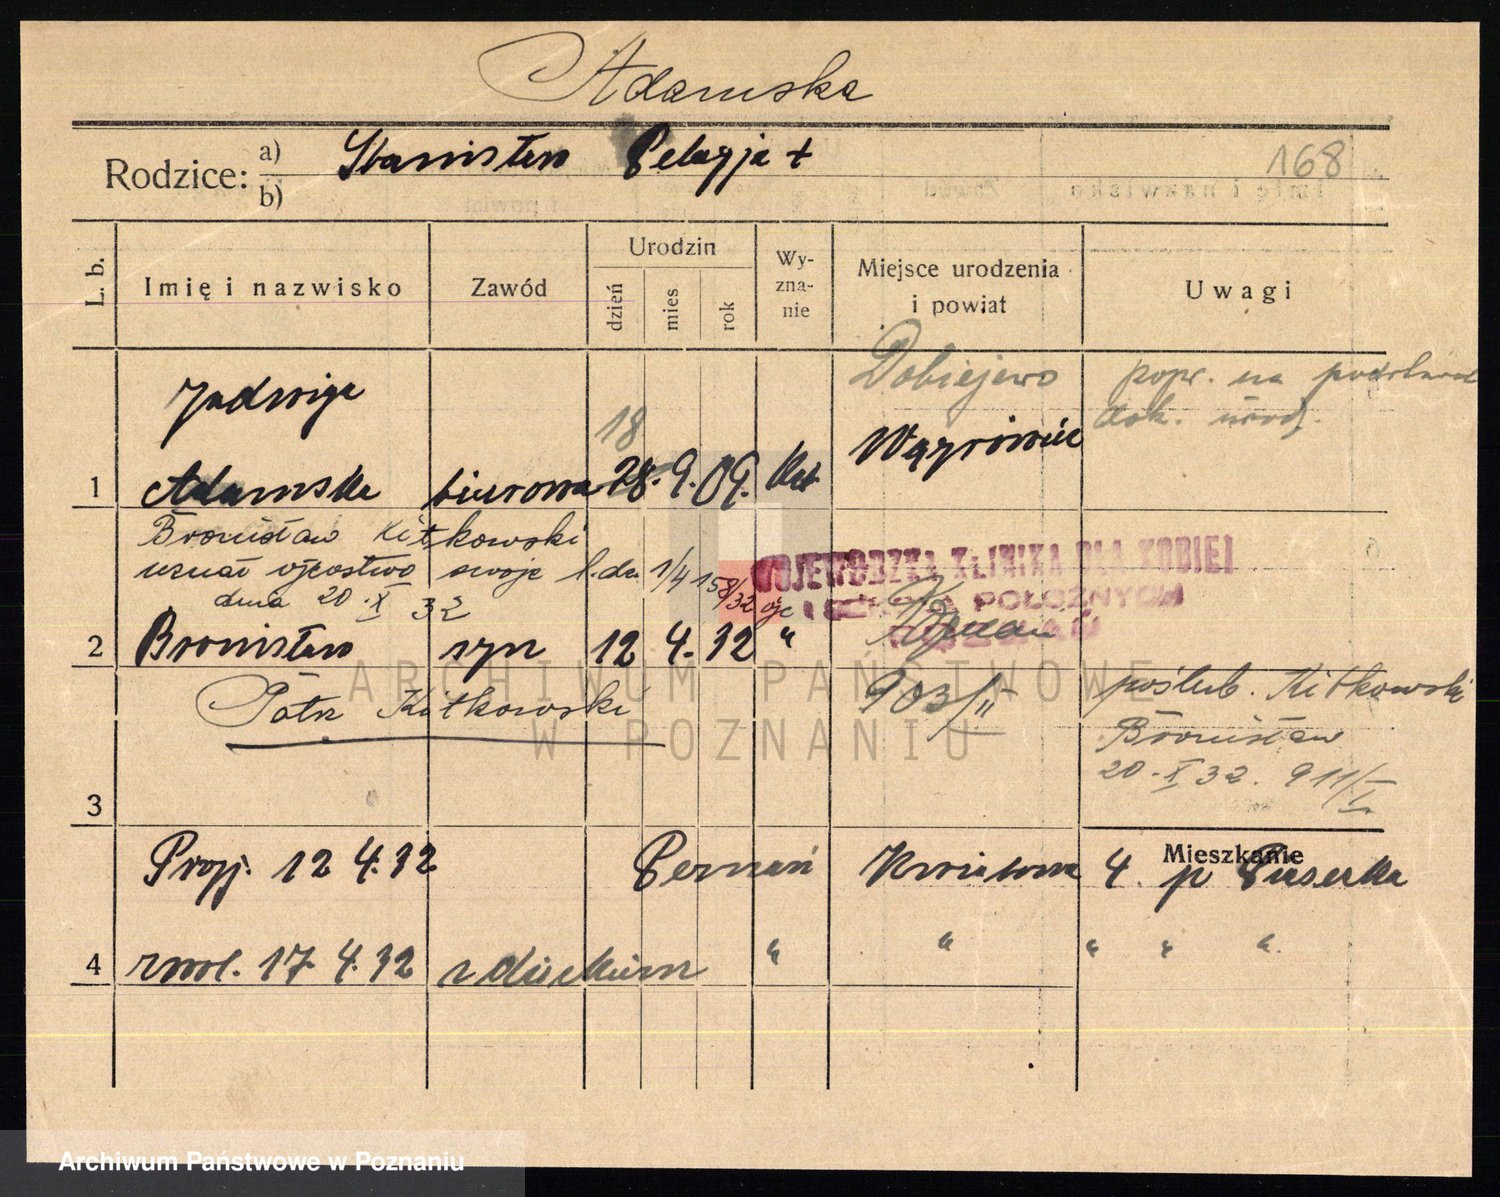 Adamska
168
Rodzice: a) Stanisław Pelagja +
b)
L. b. Imię i nazwisko Zawód Urodzin dzień mies rok Wyznanie Miejsce urodzenia i powiat Uwagi
Jadwiga Dobiejewo popr. na podstawie
18 dok. urodz.
1 Adamska biurowa 28. 9. 09. kat. Wągrówiec
Bronisław Kitkowski
uznał ojcostwo swoje l. dz. 1/4 158/32
dnia 20 X 32
WOJEWÓDZKA KLINIKA DLA KOBIET
I POŁOŻNYCH
POZNAŃ
2 Bronisław syn 12 4. 32 " Poznań
Patrz Kitkowski 903/II poślub. Kitkowski
Bronisław
20. X 32. 911/I
3
Mieszkanie
Przyj. 12 4. 32 Poznań Kwiatowa 4. p
4 zwol. 17 4. 32 z dzieckiem " " " " "
ARCHIWUM PAŃSTWOWE
W POZNANIU
Archiwum Państwowe w Poznaniu